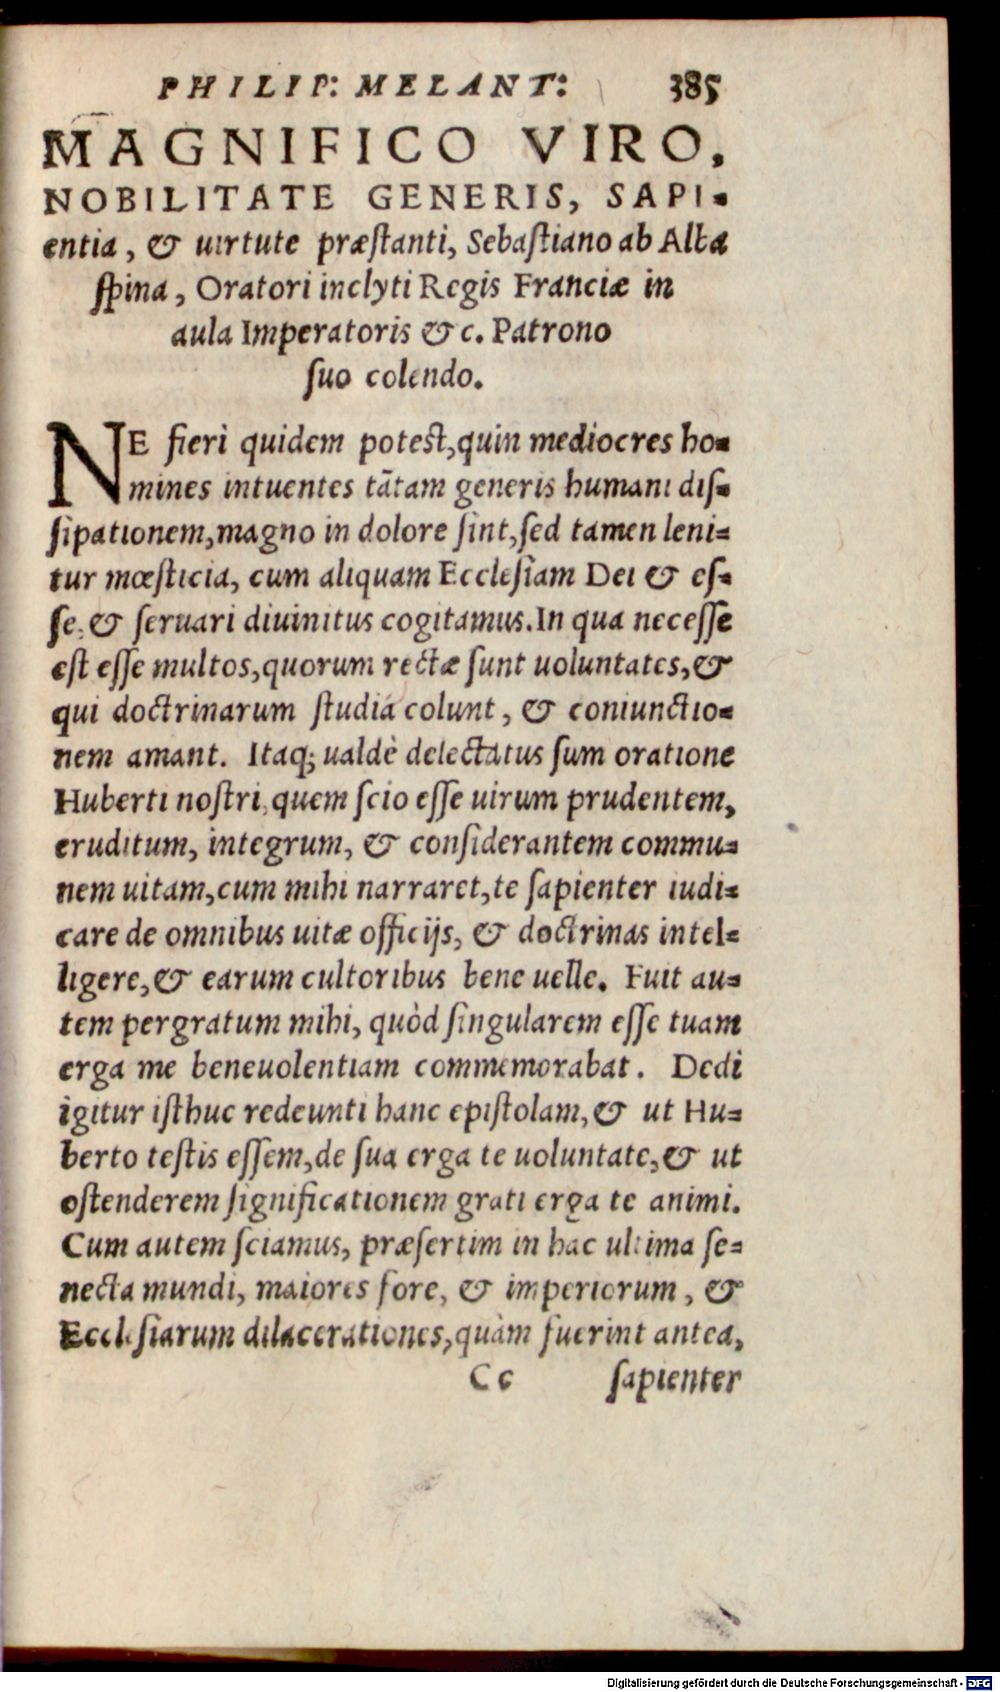 PHILIP: MELANT: 385
MAGNIFICO VIRO,
NOBILITATE GENERIS, SAPI-
entia, & uirtute præſtanti, Sebaſtiano ab Alba
ſpina, Oratori inclyti Regis Franciæ in
aula Imperatoris & c. Patrono
ſuo colendo.
NE fieri quidem poteſt, quin mediocres ho-
mines intuentes tãtam generis humani diſ-
ſipationem, magno in dolore ſint, ſed tamen leni-
tur mœſticia, cum aliquam Eccleſiam Dei & eſ-
ſe, & ſeruari diuinitus cogitamus. In qua neceſſe
eſt eſſe multos, quorum rectæ ſunt uoluntates, &
qui doctrinarum ſtudia colunt, & coniunctio-
nem amant. Itaq; ualdè delectatus ſum oratione
Huberti noſtri, quem ſcio eſſe uirum prudentem,
eruditum, integrum, & conſiderantem commu-
nem uitam, cum mihi narraret, te ſapienter iudi-
care de omnibus uitæ officijs, & doctrinas intel-
ligere, & earum cultoribus bene uelle. Fuit au-
tem pergratum mihi, quòd ſingularem eſſe tuam
erga me beneuolentiam commemorabat. Dedi
igitur iſthuc redeunti hanc epiſtolam, & ut Hu-
berto teſtis eſſem, de ſua erga te uoluntate, & ut
oſtenderem ſignificationem grati erga te animi.
Cum autem ſciamus, præſertim in hac ultima ſe-
necta mundi, maiores fore, & imperiorum, &
Eccleſiarum dilacerationes, quàm fuerint antea,
Cc ſapienter
Digitalisierung gefördert durch die Deutsche Forschungsgemeinschaft - DFG